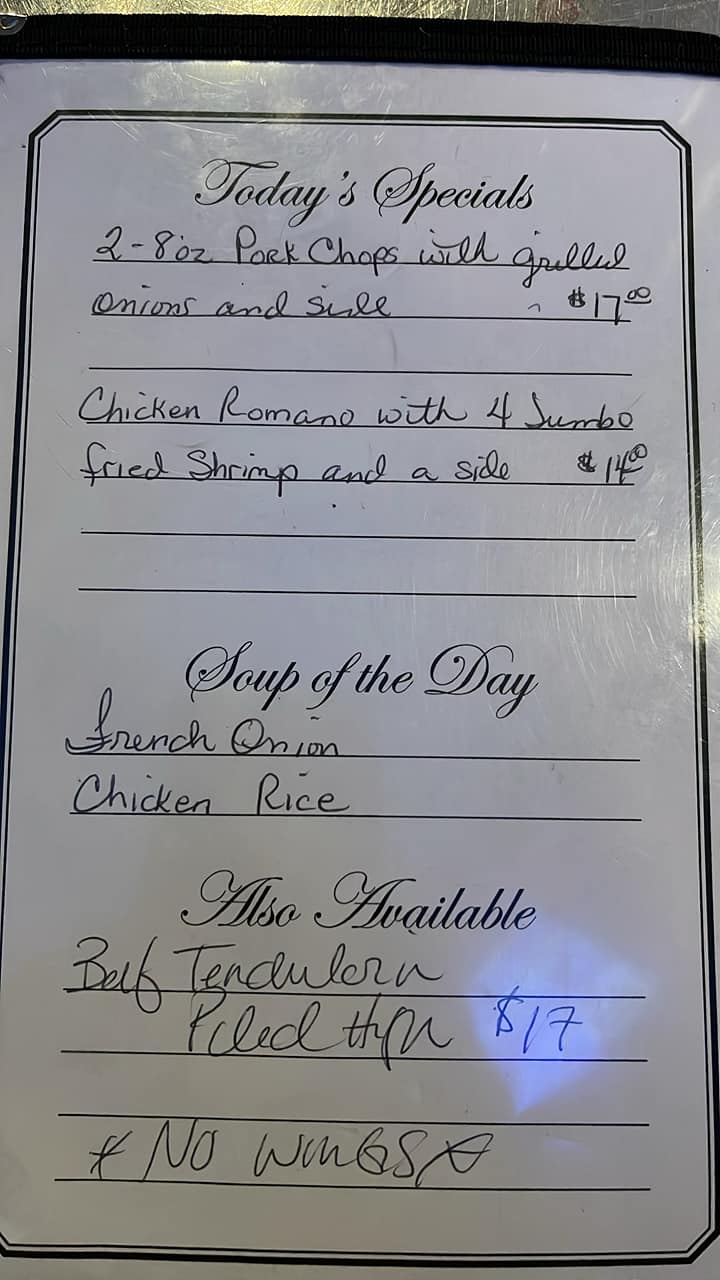 Today's Specials
2-8oz Pork Chops with grilled
onions and side $17.00
Chicken Romano with 4 Jumbo
fried Shrimp and a side $14.00
Soup of the Day
French Onion
Chicken Rice
Also Available
Beef Tenderloin
Piled High $17
* NO WINGS *